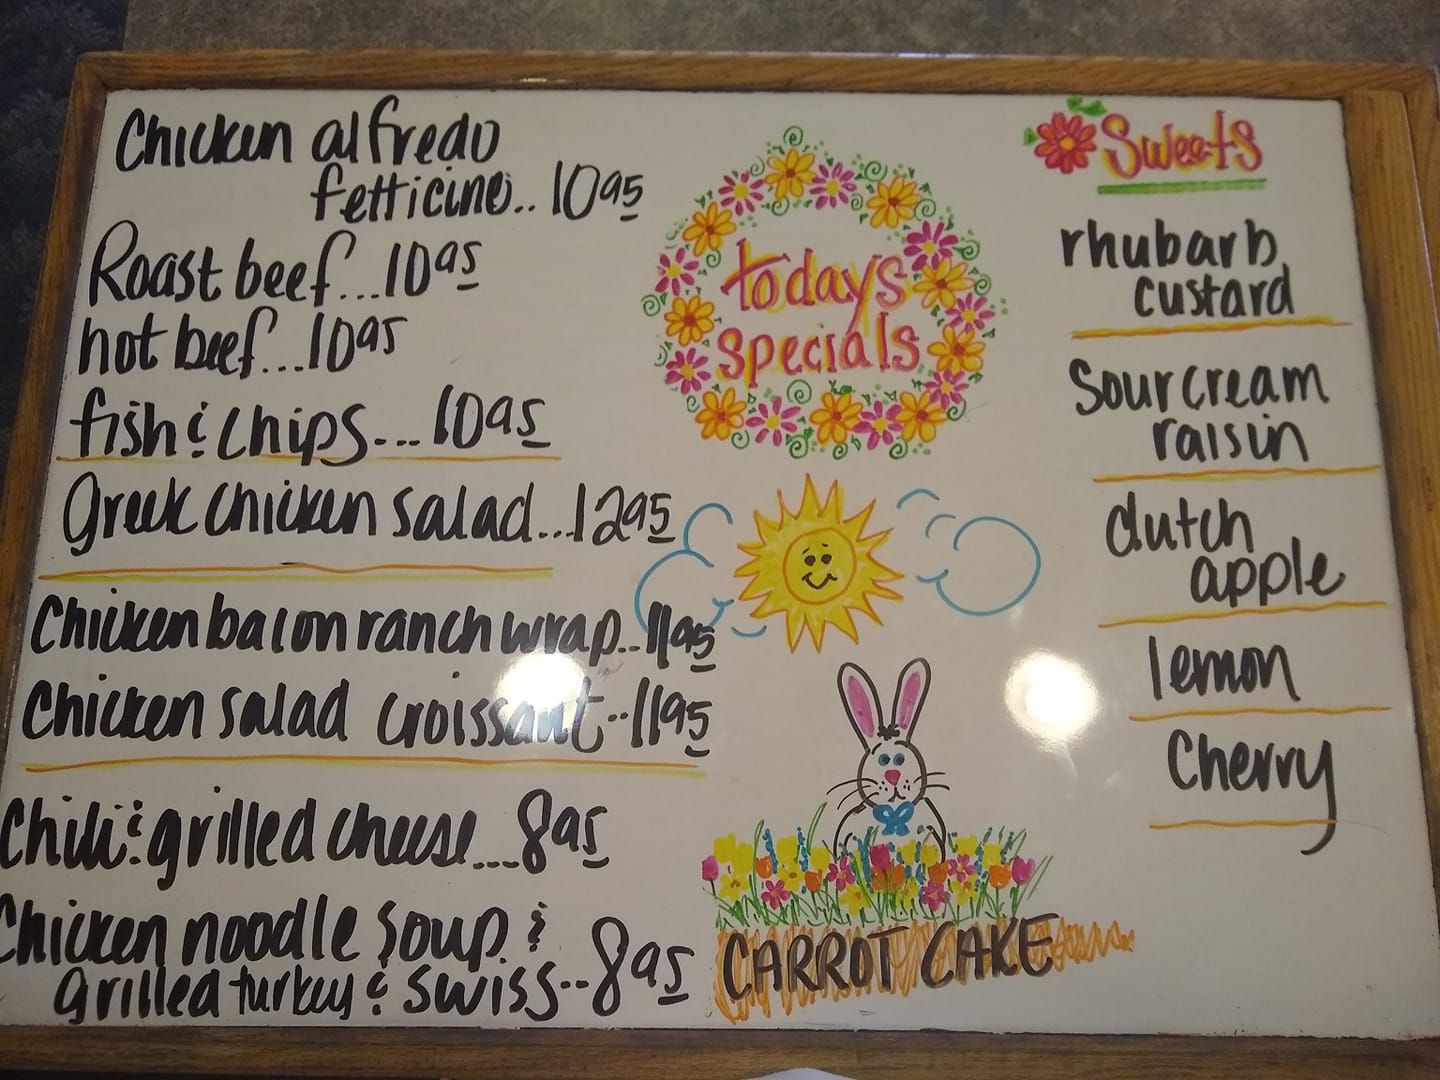 Chicken alfredo
fetticine.. 10 95
Roast beef...10 95
hot beef...10 95
fish & chips....10 95
Greek chicken salad...12 95
Chicken bacon ranch wrap..11 95
Chicken salad croissant..11 95
Chili & grilled cheese....8 95
Chicken noodle soup &
grilled turkey & swiss..8 95
todays
specials
CARROT CAKE
Sweets
rhubarb
custard
Sour cream
raisin
dutch
apple
lemon
Cherry